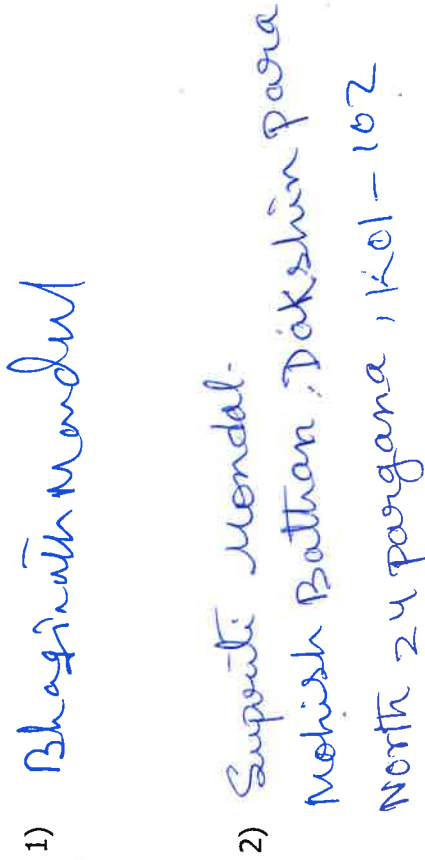 1) Bhaginath Mandal
2) Supriti Mondal.
Mohish Bathan, Dakshin para
North 24 pargana, Kol-102